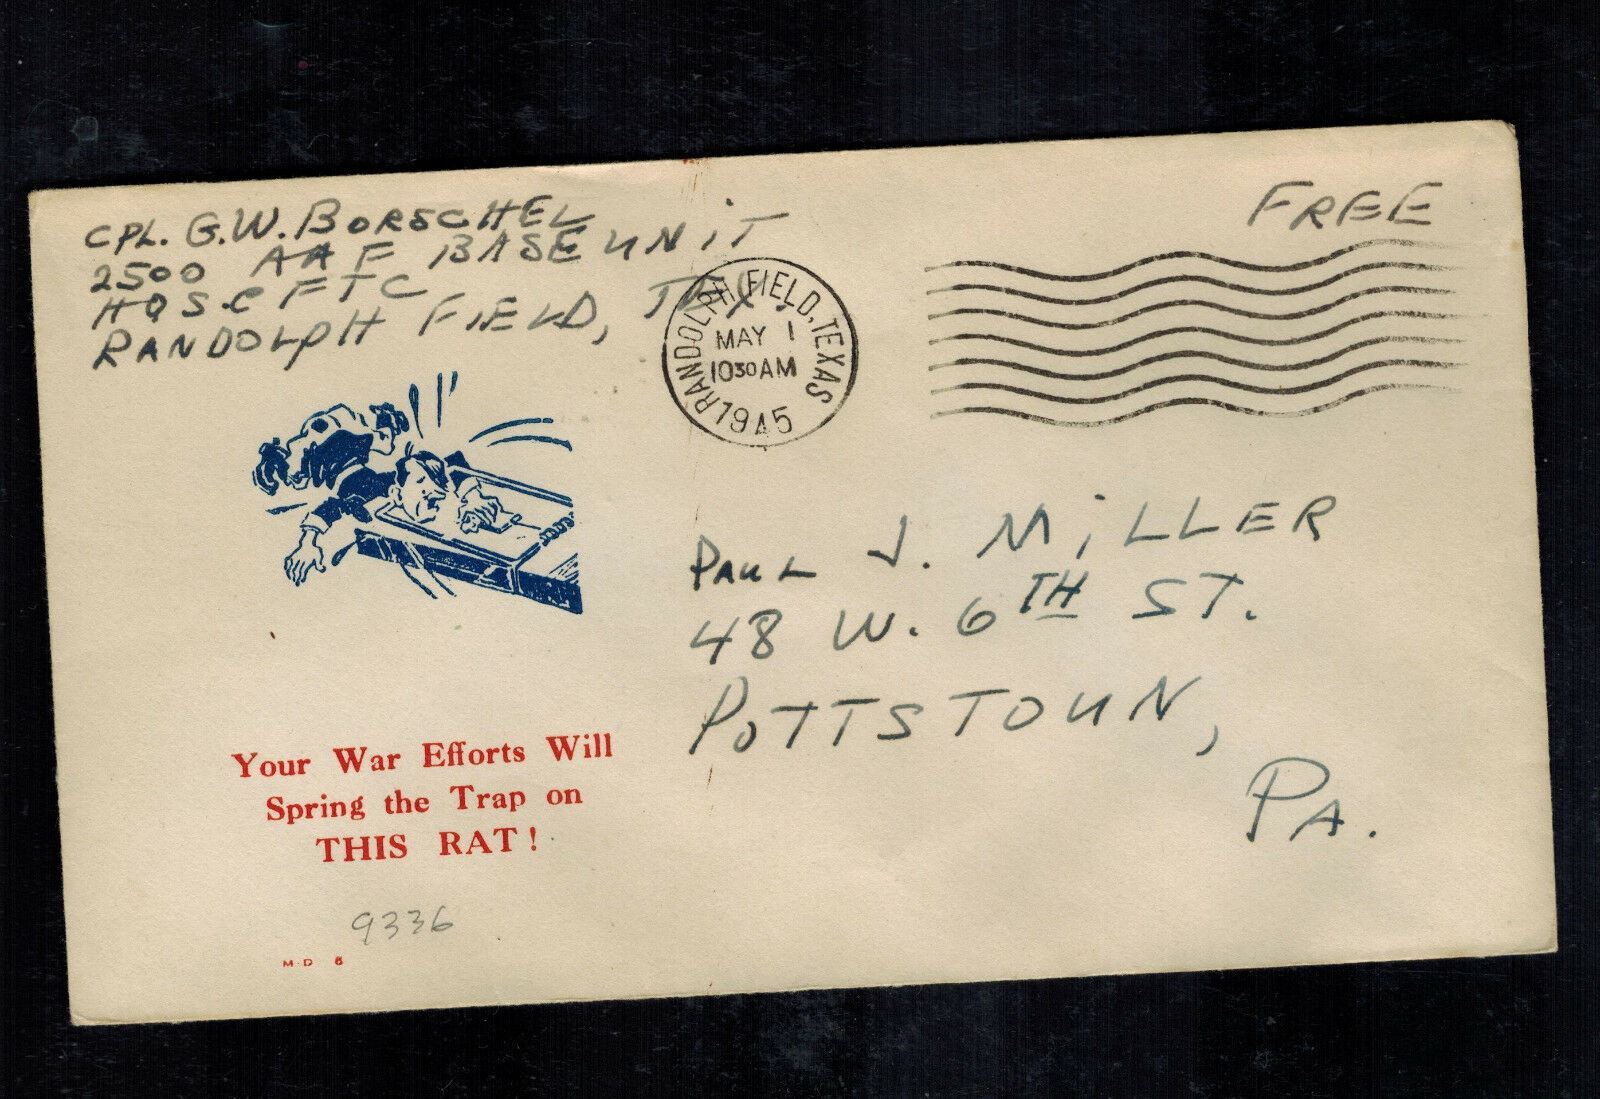 CPL. G.W. BORSCHEL
2500 AAF BASE UNIT
HQS. CFTC
RANDOLPH FIELD, TEX.
FREE
RANDOLPH FIELD, TEXAS
MAY 1
1030AM
1945
PAUL J. MiLLER
48 W. 6TH ST.
POTTSTOWN,
PA.
Your War Efforts Will
Spring the Trap on
THIS RAT!
9336
M·D 6